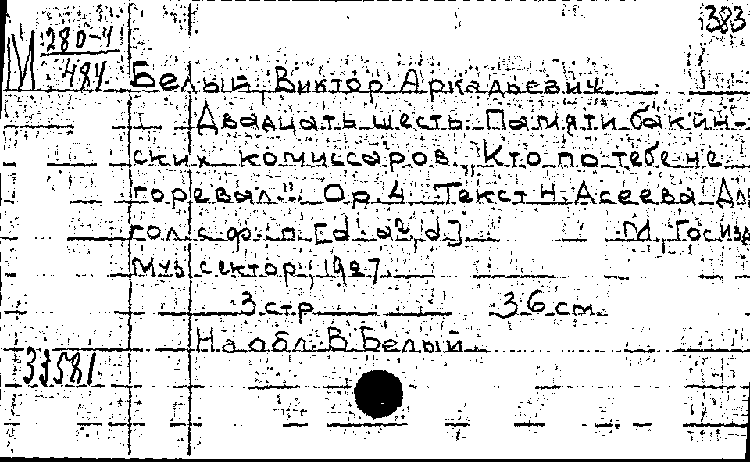 383
М 280-4
484
Белый Виктор Аркадьевич
Двадцать шесть. Памяти бакин-
ских комиссаров. "Кто по тебе не
горевал..." Ор. 4. Текст Н. Асеева. Для
гол. с ф.-п.
М., Госизд.
Муз. сектор, 1927.
3 стр. 36 см.
На обл.: В. Белый
33581